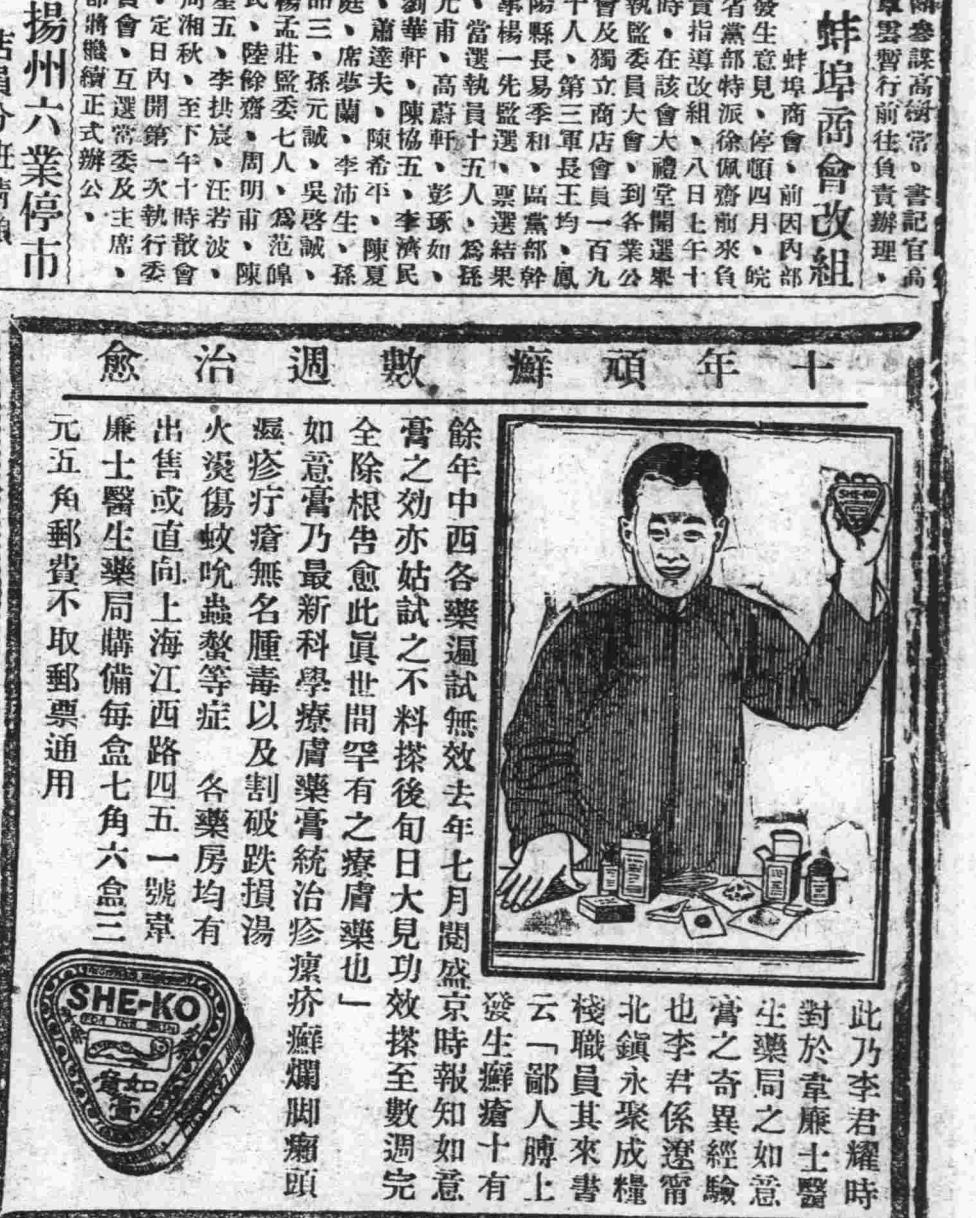 蚌埠商會改組
蚌埠商會、前因內部
發生意見、停頓四月、皖
省黨部特派徐佩齋前來負
責指導改組、八日上午十
時、在該會大禮堂開選舉
執監委員大會、到各業公
會及獨立商店會員一百九
十人、第三軍長王均、鳳
陽縣長易季和、區黨部幹
事楊一先監選、票選結果
、當選執員十五人、爲孫
元甫、高蔚軒、彭琢如、
劉華軒、陳協五、李濟民
、蕭達夫、陳希平、陳夏
庭、席夢蘭、李沛生、孫
品三、孫元誠、吳啓誠、
楊孟莊監委七人、爲范皥
民、陸餘齋、周明甫、陳
奎五、李拱宸、汪若波、
周湘秋、至下午十時散會
、定日內開第一次執行委
員會、互選常委及主席、
部將繼續正式辦公、
揚州六業停市
辦參謀高樹常、書記官高
章雲暫行前往負責辦理、
十年頑癬數週治愈
此乃李君耀時
對於韋廉士醫
生藥局之如意
膏之奇異經驗
也李君係遼甯
北鎮永聚成糧
棧職員其來書
云「鄙人膊上
發生癬瘡十有
餘年中西各藥遍試無效去年七月閱盛京時報知如意
膏之効亦姑試之不料搽後旬日大見功效搽至數週完
全除根告愈此眞世間罕有之療膚藥也」
如意膏乃最新科學療膚藥膏統治疹瘰疥癬爛脚癩頭
濕疹疔瘡無名腫毒以及割破跌損湯
火燙傷蚊吮蟲螫等症　各藥房均有
出售或直向上海江西路四五一號韋
廉士醫生藥局購備每盒七角六盒三
元五角郵費不取郵票通用
SHE-KO
SHE-KO
FOR THE SKIN
如意膏